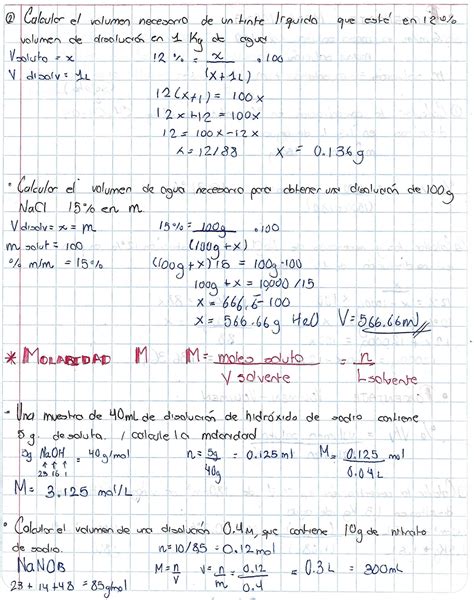 ② Calcular el volumen necesario de un tinte líquido que esté en 12%
volumen de disolución en 1 Kg de agua
Vsoluto = x 12% = x/(x+1L) · 100
V disolv = 1L
12(x+1) = 100x
12x+12 = 100x
12 = 100x-12x
x = 12/88 x = 0.136g
· Calcular el volumen de agua necesario para obtener una disolución de 100g
NaCl 15% en m
V disolv = x = m 15% = 100g/(100g+x) · 100
m solut = 100
% m/m = 15% (100g+x)15 = 100g·100
100g + x = 10000/15
x = 666.6-100
x = 566.66g H2O V= 566.66ml
* MOLARIDAD M M = moles soluto/V solvente = n/L solvente
· Una muestra de 40mL de disolución de hidróxido de sodio contiene
5g de soluto. / calcule la molaridad
5g NaOH = 40g/mol n = 5g/40g = 0.125 ml M = 0.125 mol/0.04L
23 16 1
M = 3.125 mol/L
· Calcular el volumen de una disolución 0.4M, que contiene 10g de nitrato
de sodio. n=10/85 = 0.12mol
NaNO3 M = n/V V = n/m = 0.12/0.4 = 0.3L = 300mL
23 + 14 +48 = 85g/mol